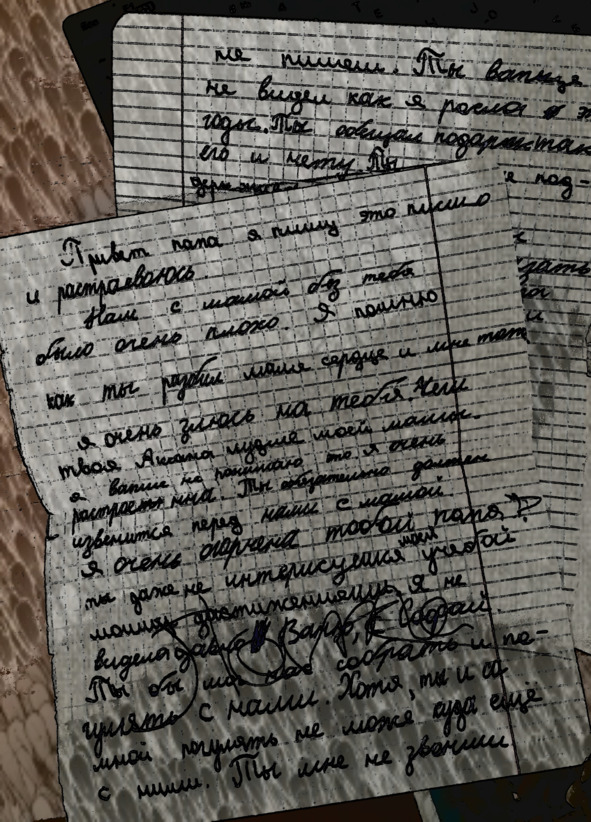 не пишеш. Ты вапще
не видел как я росла
годы. Ты обещал подарж. так
его и нету. Ты
е под-
зать
и
Привет папа я пишу это письмо
и растраеваюсь
Нам с мамой без тебя
было очень плохо. Я помню
как ты разбил маме сердце и мне тоже
я очень злюсь на тебя. Чем
твоя Аксана лудше моей мамы.
я вапще не понимаю то я очень
растроенна. Ты обязательно должен
извенится перед нами с мамой
Я очень огорчена тобой папа
ты даже не интерисуешся моей учебой
моими достижениями, Я не
видела давно Варю, Софой.
Ты бы мог нас собрать и по-
гулять с нами. Хотя, ты и со
мной погулять не може куда ещё
с ними. Ты мне не звониш